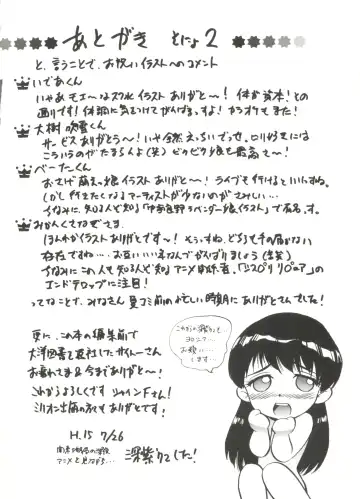 あとがき とにょ2
と、言うことで、お祝いイラストへのコメント
いであくん
いやあ モエ〜なスク水イラスト ありがと〜! 体が資本!との
通りです! 体調に気をつけてがんばりますよ! カラオケもまた!
大樹 吹雪くん
サービスありがとう〜! いや全然えっちいでっせ。ロリ好きには
こういうのがたまらんよ(笑) ピクピク娘も最高を〜!
べーたーくん
おさげ萌えっ娘イラスト ありがと〜! ライブも行けるといいすね。
しかし行きたくなるアーティストが少ないのがさみしい…
ちなみに、知る人ぞ知る「中富良野ラベンダー娘イラスト」で有名す。
みかんくさなぎさま
ほんわかイラスト ありがとです〜!
存在ですね… お互いいろんな意味でがんばりましょう(苦笑)
ちなみに この人も 知る人ぞ知る アニメ
エンドテロップに注目!
ってなことで、みなさん 夏コミ前の忙しい時期に ありがとさんでした!
更に、この本の編集前で
大洋図書を退社したサイトーさん
お暮れさま&今まであざーす!
これからよろしくです シャインFさん!
ミリオン出版の方も ありがとです!
H.15 7/26
アニメを見ながら…
深紫でした!
これからも
ヨロシク…
お願い
します…